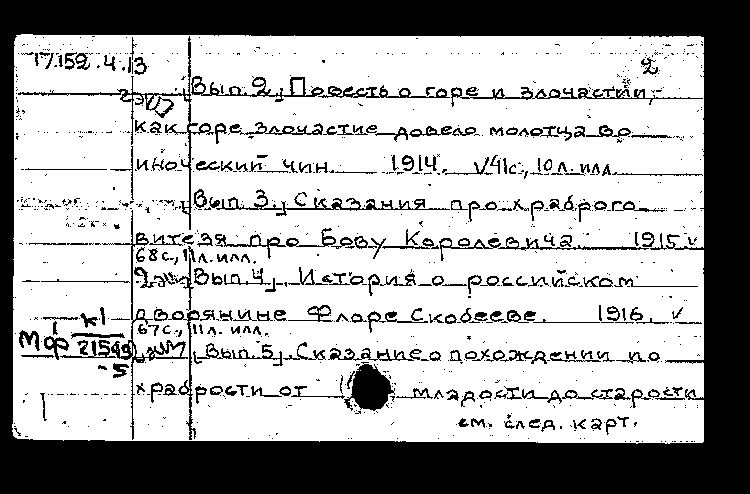 17.152.4.13
2
[Вып. 2.] Повесть о горе и злочастии,
2 экз
как горе злочастие довело молотца во
иноческий чин. 1914. V 41 с., 10 л. илл.
[Вып. 3.] Сказания про храброго
витезя про Бову Королевича 1915 v
68 с., 11 л. илл.
2 экз [Вып. 4]. История о российском
дворянине Флоре Скобееве. 1916. v
67 с., 11 л. илл.
Мф К1
21549
-5
[Вып. 5]. Сказание о похождении и о
храбрости от младости до старости
см. след. карт.